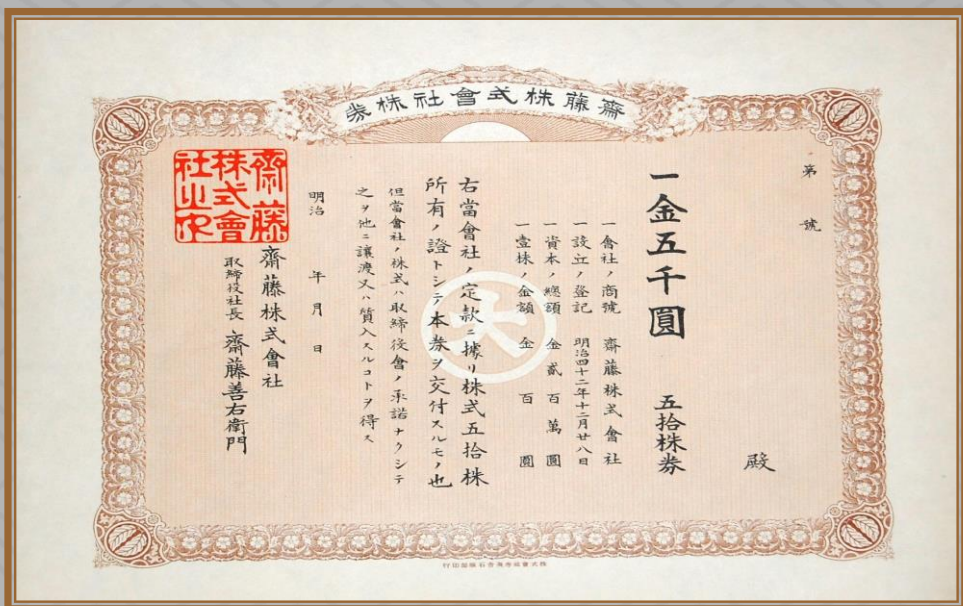 齋藤株式會社株券
第 號
殿
一金五千圓 五拾株券
一會社ノ商號 齋藤株式會社
一設立ノ登記 明治四十二年十二月廿八日
一資本ノ總額 金貳百萬圓
一壹株ノ金額 金百圓
右當會社ノ定款ニ據リ株式五拾株
所有ノ證トシテ本券ヲ交付スルモノ也
但當會社ノ株式ハ取締役會ノ承諾ナクシテ
之ヲ他ニ讓渡又ハ質入スルコトヲ得ス
明治 年 月 日
齋藤株式會社
取締役社長 齋藤善右衛門
齋藤
株式會
社之印
大